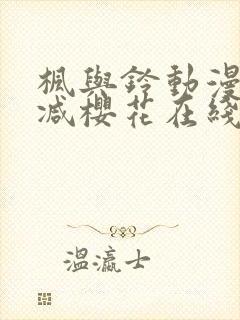 楓與鈴動漫
減櫻花在綫
溫瀛士